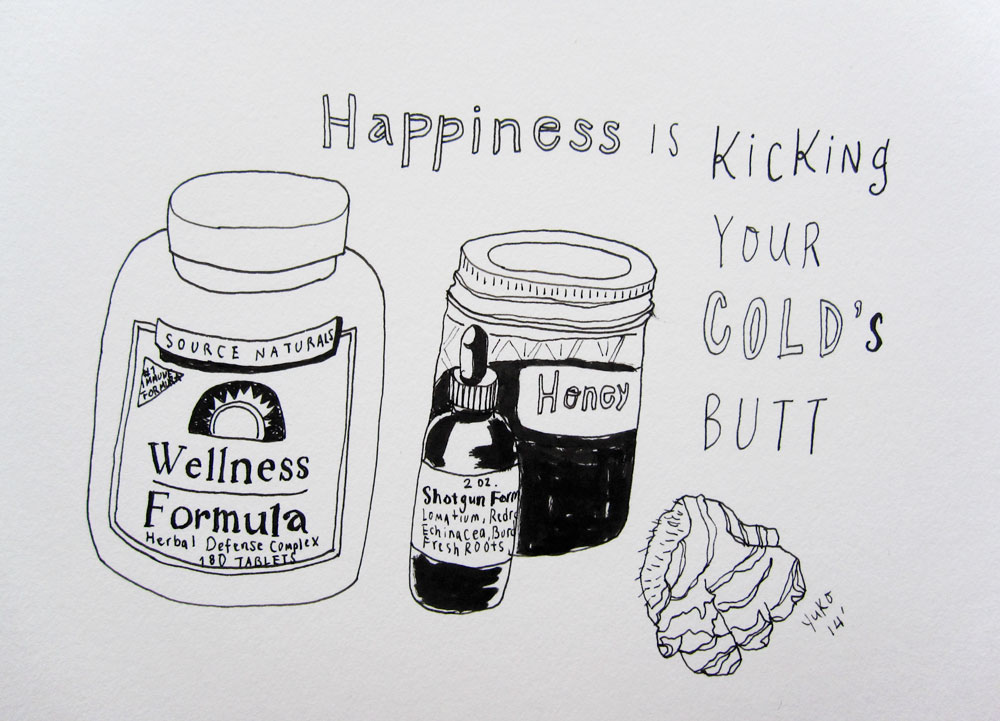 Happiness IS KicKiNg
YOUR
COLD's
BUTT
SOURCE NATURALS
#1
IMMUNE
FORMULA
Wellness
Formula
Herbal Defense Complex
180 TABLETS
Honey
2 oz.
Shotgun Form
Lomatium, Redr
Echinacea, Burd
Fresh Roots,
YUKO
14'